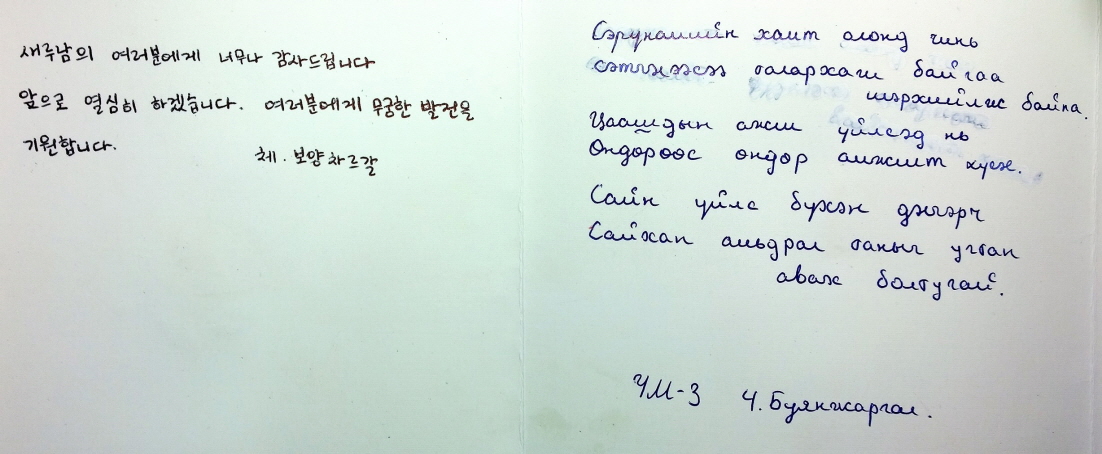 새루남의 여러분에게 너무나 감사드립니다
앞으로 열심히 하겠습니다. 여러분에게 무궁한 발전을
기원합니다.
체. 보양차르갈
Сэрүнамийн хамт олонд чинь
сэтгэлээсээ талархаж байгаа
илэрхийлж байна.
Цаашдын ажил үйлсэд нь
Өндөрөөс өндөр амжилт хүсэж.
Сайн үйлс бүхэн дэлгэрч
Сайхан амьдрал таныг угтан
авах болтугай.
ЧМ-3 Ч. Буянжаргал.